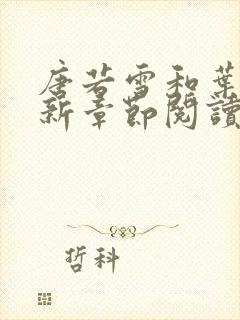 唐若雪和葉
新章節閱讀
哲科